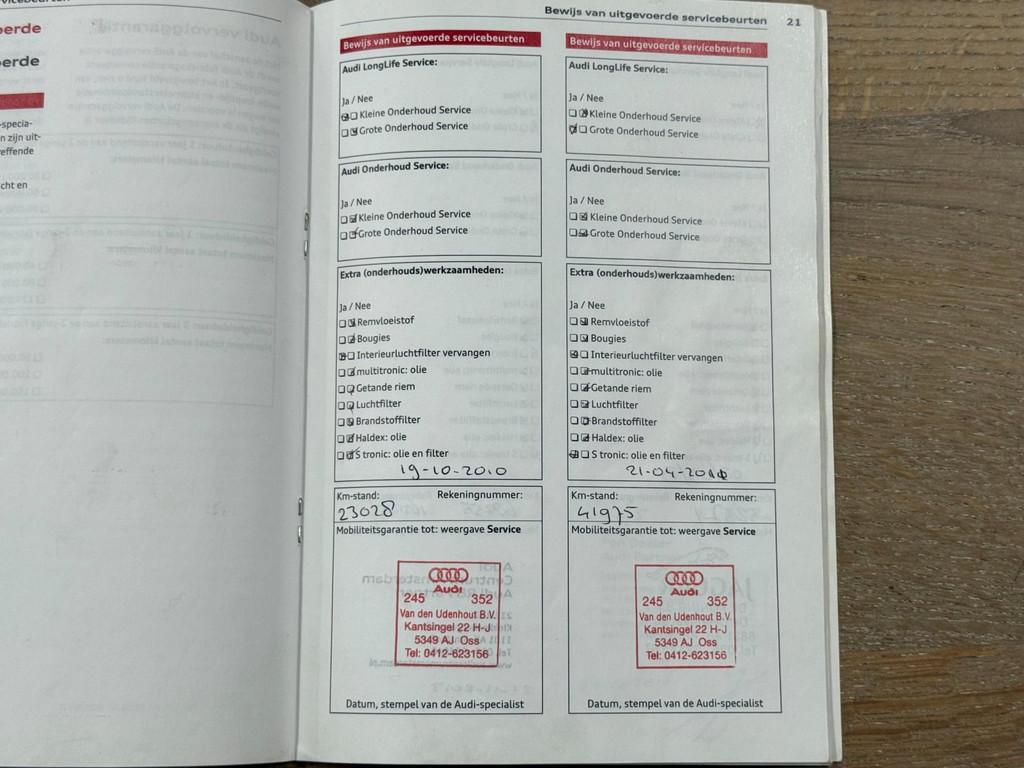 oerde
oerde
-specia-
n zijn uit-
effende
cht en
Bewijs van uitgevoerde servicebeurten 21
Bewijs van uitgevoerde servicebeurten
Audi LongLife Service:
Ja / Nee
Kleine Onderhoud Service
Grote Onderhoud Service
Audi Onderhoud Service:
Ja / Nee
Kleine Onderhoud Service
Grote Onderhoud Service
Extra (onderhouds)werkzaamheden:
Ja / Nee
Remvloeistof
Bougies
Interieurluchtfilter vervangen
multitronic: olie
Getande riem
Luchtfilter
Brandstoffilter
Haldex: olie
S tronic: olie en filter
19-10-2010
Km-stand: Rekeningnummer:
23028
Mobiliteitsgarantie tot: weergave Service
Audi
245 352
Van den Udenhout B.V.
Kantsingel 22 H-J
5349 AJ Oss
Tel: 0412-623156
Datum, stempel van de Audi-specialist
Bewijs van uitgevoerde servicebeurten
Audi LongLife Service:
Ja / Nee
Kleine Onderhoud Service
Grote Onderhoud Service
Audi Onderhoud Service:
Ja / Nee
Kleine Onderhoud Service
Grote Onderhoud Service
Extra (onderhouds)werkzaamheden:
Ja / Nee
Remvloeistof
Bougies
Interieurluchtfilter vervangen
multitronic: olie
Getande riem
Luchtfilter
Brandstoffilter
Haldex: olie
S tronic: olie en filter
21-04-
Km-stand: Rekeningnummer:
41975
Mobiliteitsgarantie tot: weergave Service
Audi
245 352
Van den Udenhout B.V.
Kantsingel 22 H-J
5349 AJ Oss
Tel: 0412-623156
Datum, stempel van de Audi-specialist